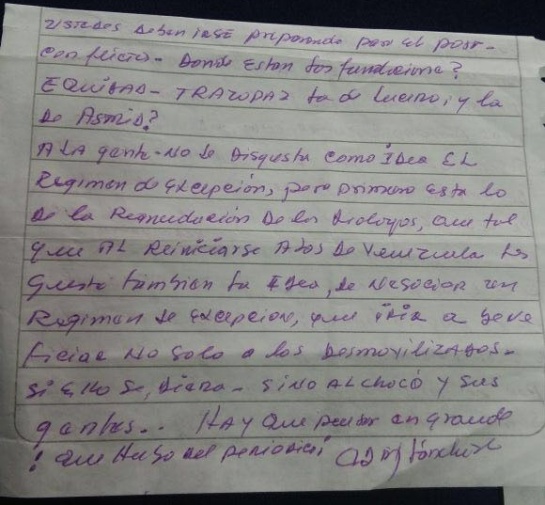 ustedes deben irse preparando para el post-
conflicto- Donde estan tos fundacione?
EQUIDAD- TRAZOPAZ ta de Lucero, y la
de Asmid?
A LA gente- NO le Disgusta como IDea EL
Regimen de excepción, pero primero esta lo
De la Reanudación De los Dialogos, que tal
que AL Reiniciarse A los De Venezuela les
Guste tambien ta Idea, de Negociar un
Regimen de excepcion, que iria a bene
ficiar No solo a los Desmovilizados-
si Ello se, Diera- SINO AL CHOCÓ y sus
gentes.. HAY Que pensar en grande
! que Hubo del periodico¡